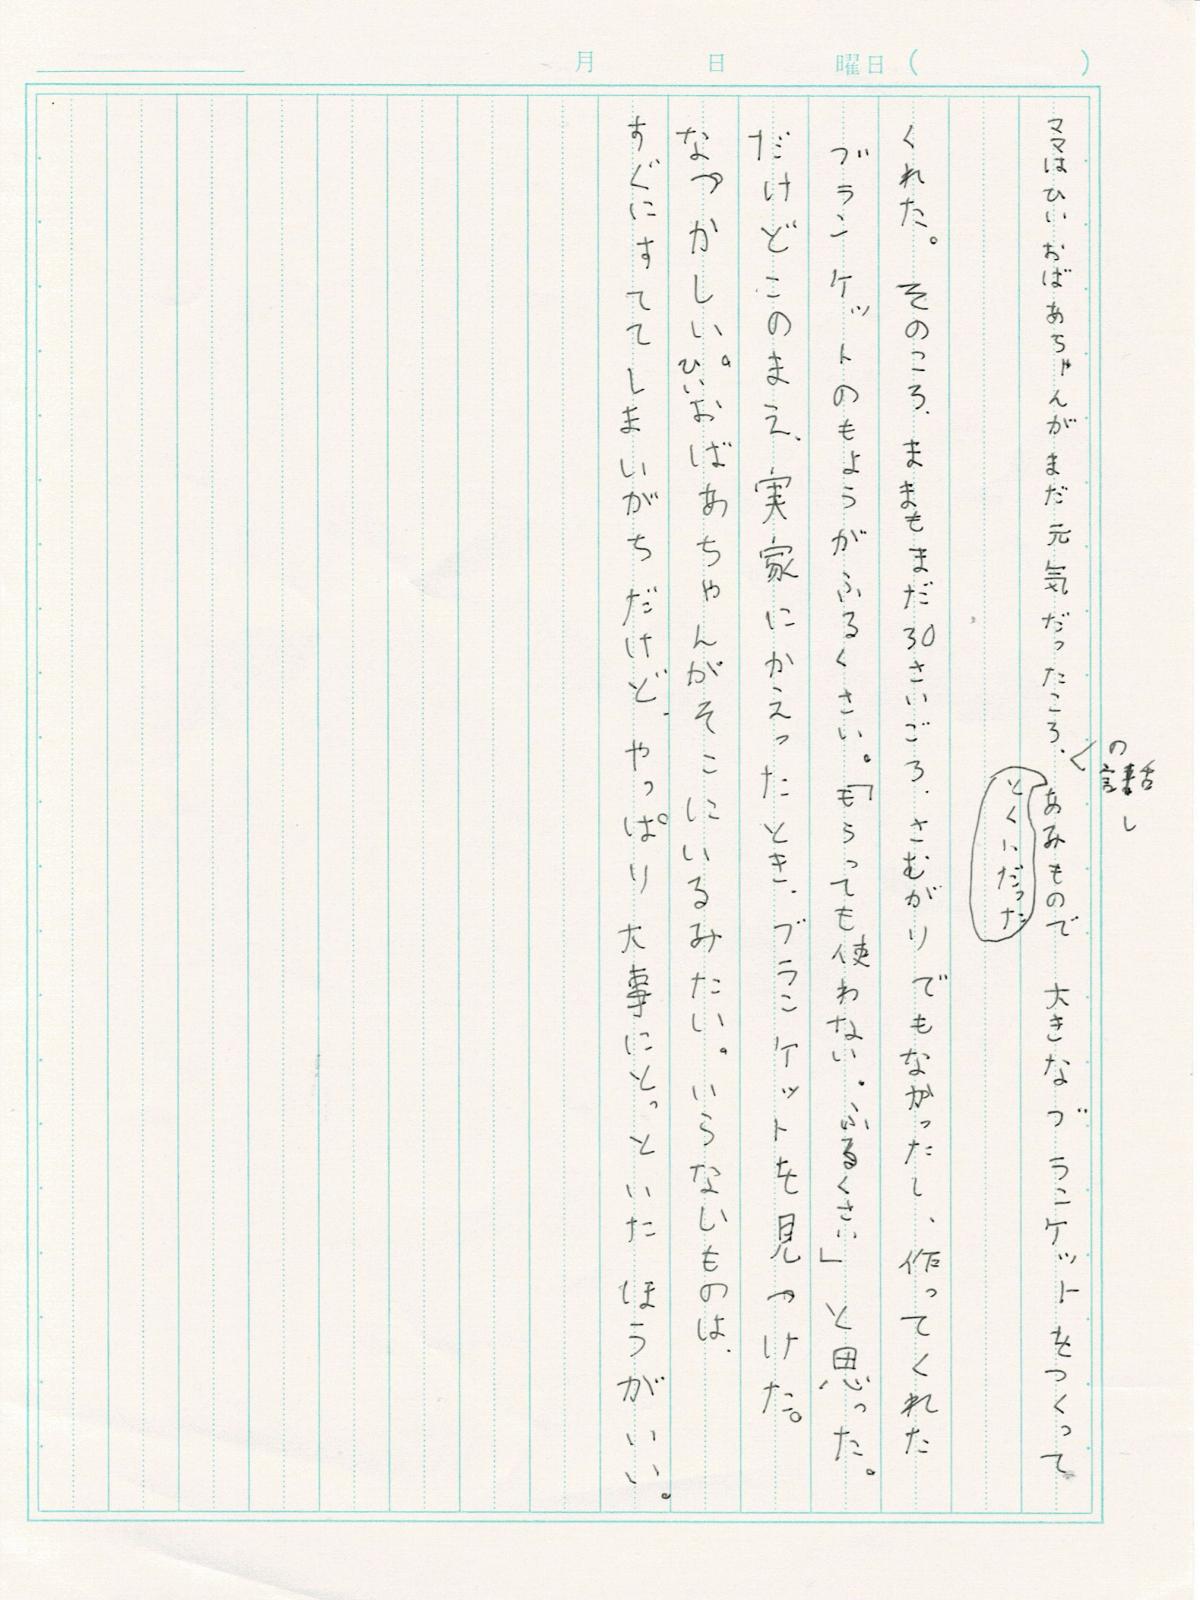 月 日 曜日( )
の話し
ママはひいおばあちゃんがまだ元気だったころ、あみもので大きなブランケットをつくって
とくいだった
くれた。そのころ、ままもまだ30さいごろ、さむがりでもなかったし、作ってくれた
ブランケットのもようがふるくさい。「もらっても使わない。ふるくさい」と思った。
だけどこのまえ、実家にかえったとき、ブランケットを見つけた。
なつかしい。ひいおばあちゃんがそこにいるみたい。いらないものは、
すぐにすててしまいがちだけど、やっぱり大事にとっといたほうがいい。